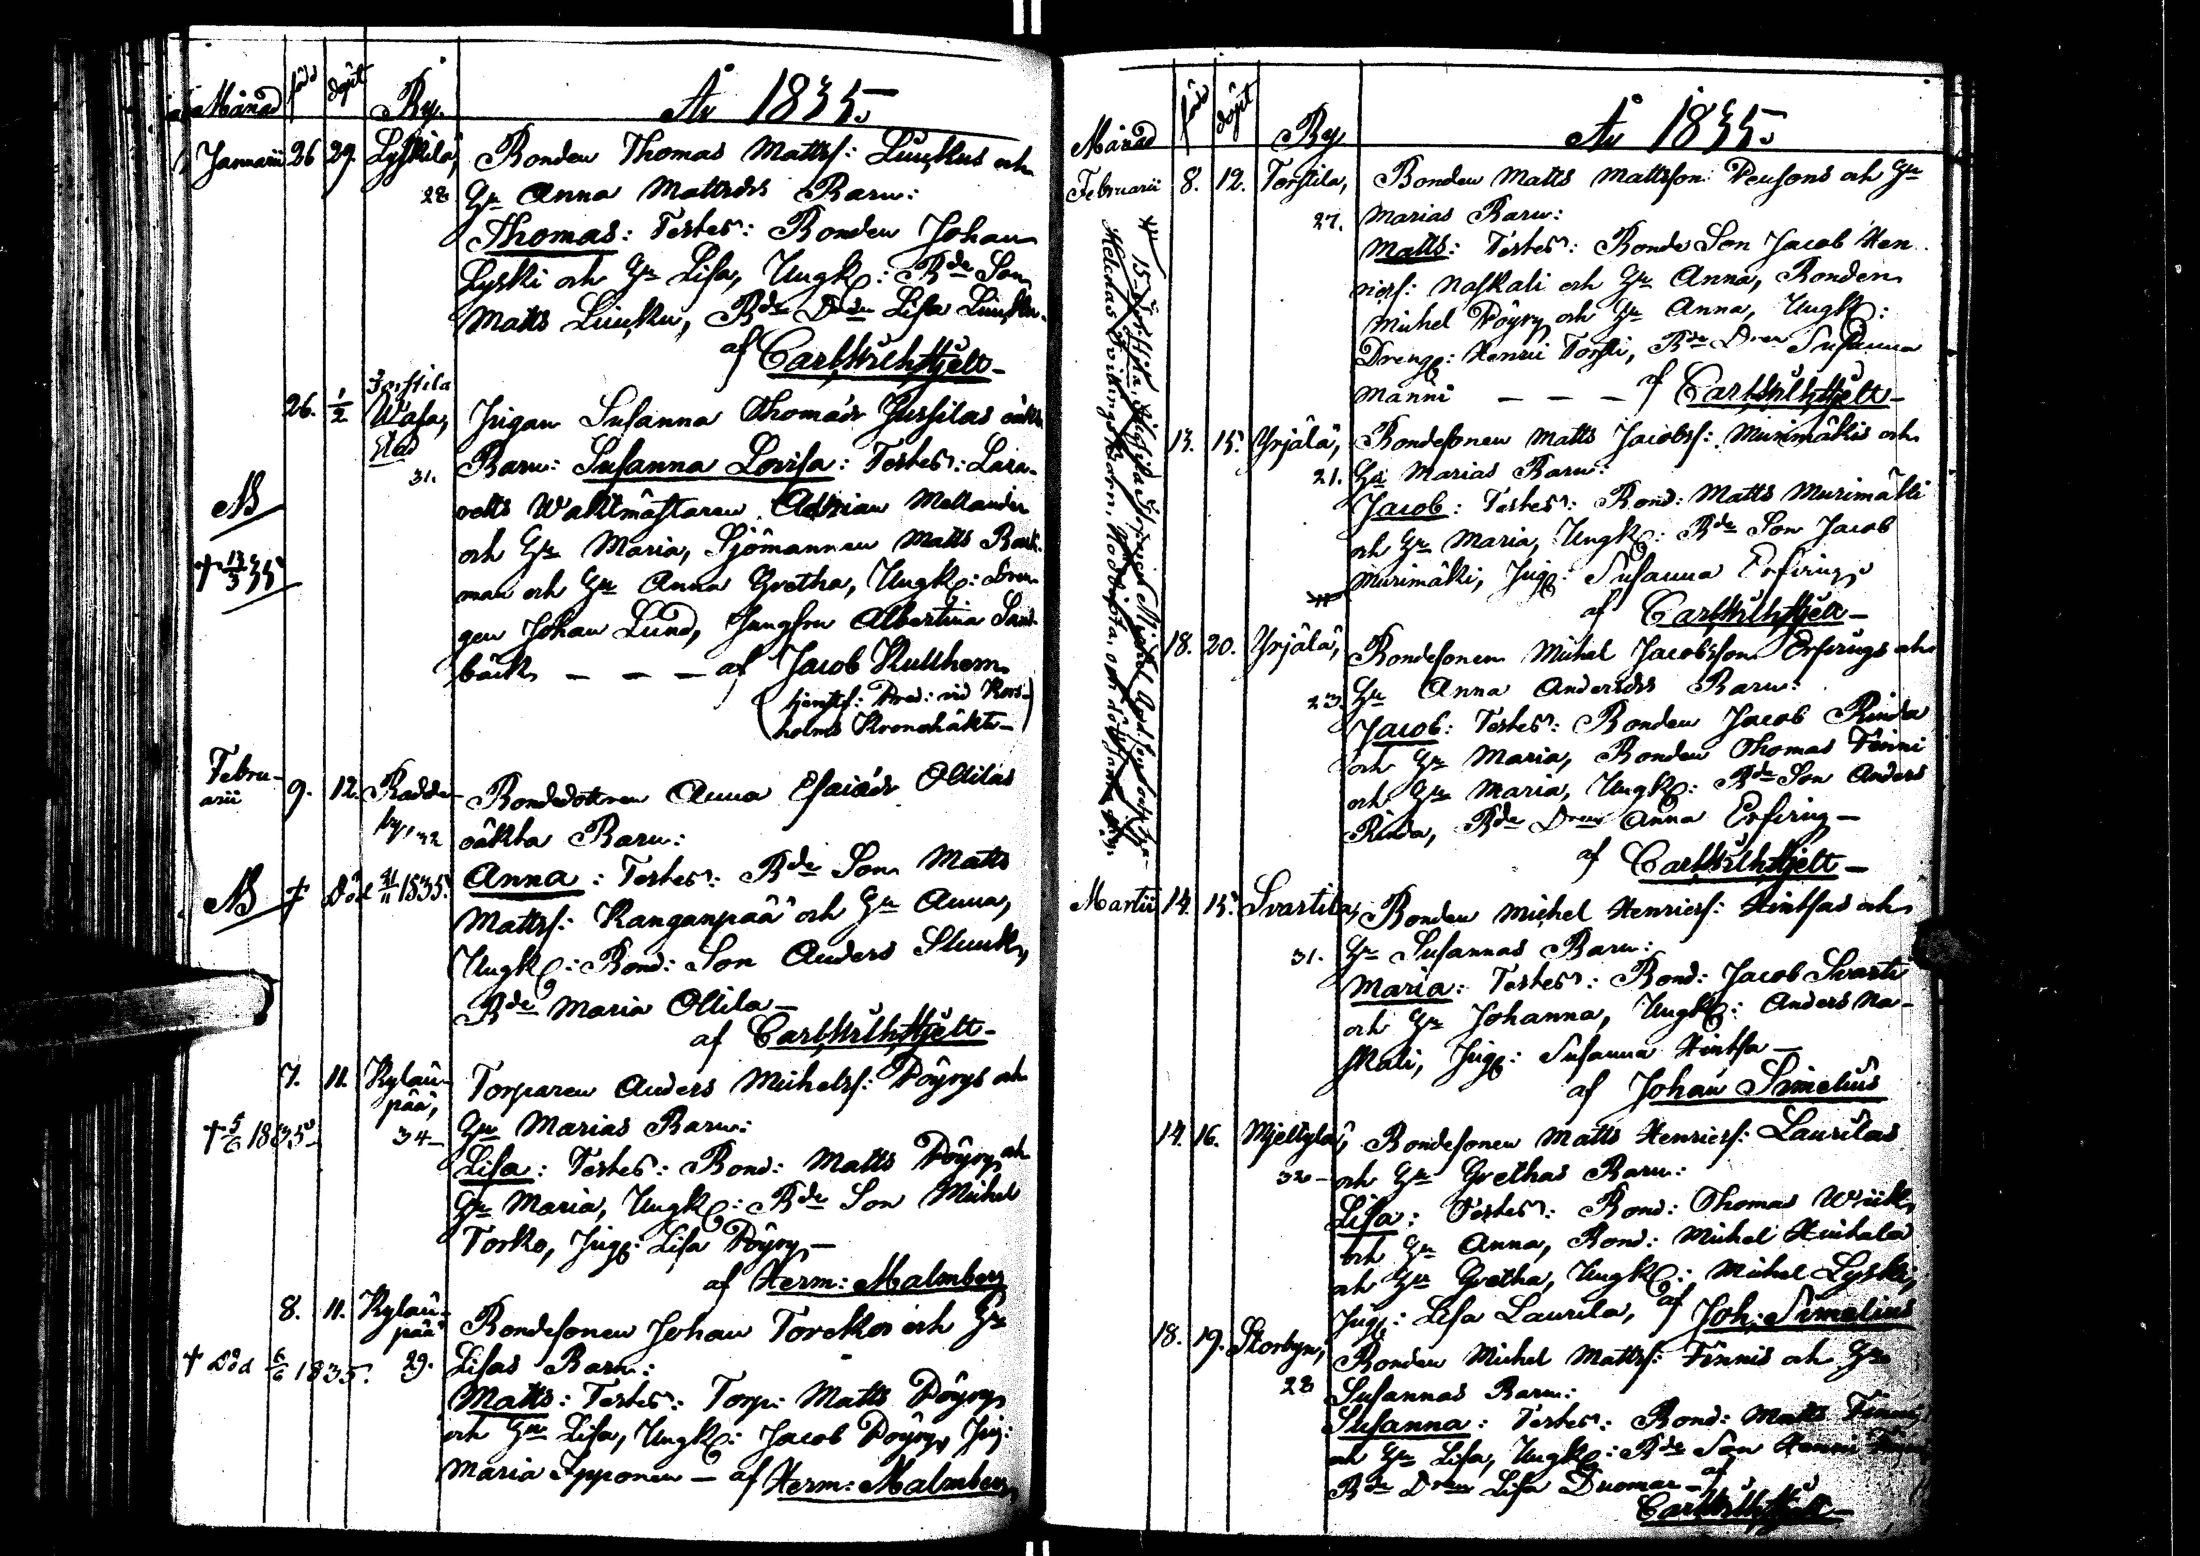 Månad född döpt By. År 1835.
Januarii 26 29. Lyskilä, Bonden Thomas Mattss: Luuckus och
28 Hu Anna Mattsdrs Barn:
Thomas: Testes: Bonden Johan
Lyski och Hu Lisa, Ungk: Bde Son
Matts Luucku, Bde Dr Lisa Luucku.
af Carl Wilh. Hjelt
26. 1/2 Torstila Wasa, Stad Pigan Susanna Thomasdr Jussilas oäkta
31. Barn: Susanna Lovisa: Testes: Laza-
retts Waktmästaren Adrian Mellander
NB
och Hu Maria, Sjömannen Matts Back-
† 13/3 35
man och Hu Anna Gretha, Ungk: Dren-
gen Johan Lund, Jungfru Albertina Sand-
bäck — — — af Jacob Kullhem
(tjenstf: Pred: vid Kors-
holms Kronohäkte—)
Febru-
arii 9. 12. Radde-
by, 32 Bondedottren Anna Esaiædr Ollilas
oäkta Barn:
Anna: Testes: Bde Son Matts
NB † Död 21/11 1835.
Mattss: Kanganpää och Hu Anna,
Ungk: Bond: Son Anders Sluuk,
Bde Maria Ollila—
af Carl Wilh. Hjelt
7. 11. Kylän-
pää, Torparen Anders Michelss: Pöyrys och
† 5/6 1835 34— Hu Marias Barn:
Lisa: Testes: Bond: Matts Pöyry och
Hu Maria, Ungk: Bde Son Michel
Torko, Pig: Lisa Pöyry—
af Herm: Malmberg
8. 11. Kylän-
pää Bondesonen Johan Torckos och Hu
† Död 6/6 1835. 29. Lisas Barn:
Matts: Testes: Torp: Matts Pöyry
och Hu Lisa, Ungk: Jacob Pöyry, Pig:
Maria Ypponen — af Herm: Malmberg
Månad född döpt By År 1835.
Februarii 8. 12. Torstila, Bonden Matts Mattsson Pensons och Hu
27. Marias Barn:
Matts: Testes: Bonde Son Jacob Hen-
ricss: Naskali och Hu Anna, Bonden
Michel Pöyry och Hu Anna, Ungk:
Dreng: Henric Torsti, Bde Dren Susanna
Männi — — — af Carl Wilh. Hjelt
13. 15. Yrjälä, Bondesonen Matts Jacobss: Murimäkis och
21. Hu Marias Barn:
Jacob: Testes: Bond: Matts Murimäki
och Hu Maria, Ungk: Bde Son Jacob
Murimäki, Pig: Susanna Erfving
af Carl Wilh. Hjelt
18. 20. Yrjälä, Bondesonen Michel Jacobsson Erfvings och
23. Hu Anna Andersdrs Barn:
Jacob: Testes: Bonden Jacob Rinda
och Hu Maria, Bonden Thomas Finni
och Hu Maria, Ungk: Bde Son Anders
Rinda, Bde Dren Anna Erfving—
af Carl Wilh. Hjelt
Martii 14. 15. Svartila, Bonden Michel Henricss: Hintsas och
31. Hu Susannas Barn:
Maria: Testes: Bond: Jacob Svarti
och Hu Johanna, Ungk: Anders Na-
skali, Pig: Susanna Hintsa—
af Johan Simelius
14. 16. Mjeltylä, Bondesonen Matts Henricss: Laurilas
32— och Hu Grethas Barn:
Lisa: Testes: Bond: Thomas Wiik,
och Hu Anna, Bond: Michel Huihala
och Hu Gretha, Ungk: Michel Lyski,
Pig: Lisa Laurila, af Joh: Simelius
18. 19. Storbyn, Bonden Michel Mattss: Finnis och Hu
28 Susannas Barn:
Susanna: Testes: Bond: Matts Finni
och Hu Lisa, Ungk: Bde Son
Bde Dren Lisa Duomar— af
Carl Wilh. Hjelt